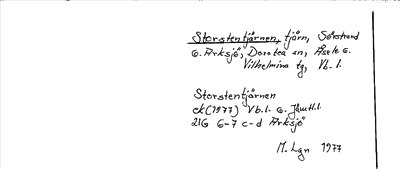 Storstentjärnen, tjärn, Sörstrand
G. Arksjö, Dorotea sn, Åsele G.
Vilhelmina tg, Vb. l.
Storstentjärnen
ek (1977) Vb.l. G. Jämtl.l.
21G 6-7 c-d Arksjö
M. Lgn 1977